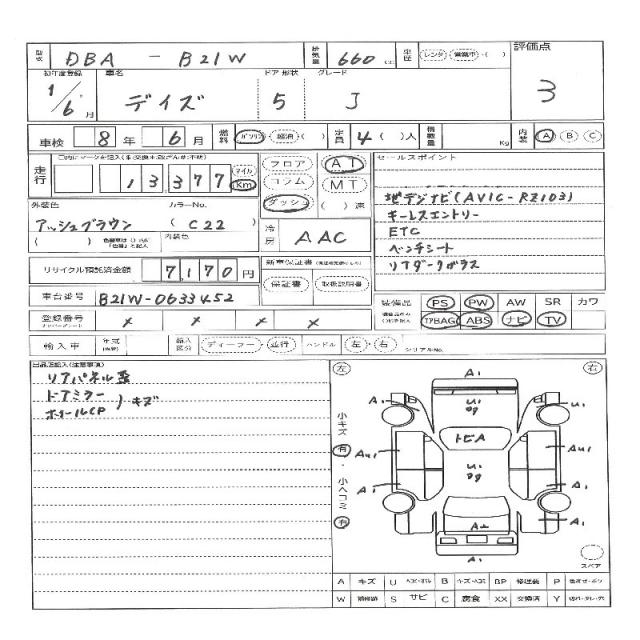 型式 DBA - B21W 排気量 660 (cc) 車歴 レンタ ・ 営業中 ・ ( ) 評価点
初年度登録 車名 ドア 形状 グレード
1/6月 デイズ 5 J 3
車検 8 年 6 月 燃料 ガソリン 軽油 ( ) 定員 4 ( )人 積載量 Kg 内装 A B C
走行 13,377 マイル Km フロア AT セールスポイント
コラム MT
ダッシュ ( ) 速 地デジナビ(AVIC-RZ103)
外装色 カラーNo. キーレスエントリー
アッシュブラウン ( C22 ) 冷房 AAC ETC
( ) 内装色 ベンチシート
リアダークガラス
リサイクル預託済金額 7,170 円 新車保証書
保証書 ・ 取扱説明書
車台番号 B21W-0633452 装備品 PS PW AW SR カワ
登録番号 × × × × エアBAG ABS ナビ TV
輸入車 年式 輸入区分 ディーラー ・ 並行 ハンドル 左 ・ 右 シリアルNo.
出品店記入(注意事項) 左 右
リアパネル歪
ドアミラー
ホイールCP ) キズ
小キズ 有 ・ 小ヘコミ 有
A1
A1 U1 A1
トビA
AU1 U1 AU1
A1 A1
A2 A1
A1
スペア
A キズ U ヘコミ B キズ・ヘコミ BP 修理装 P
W 補修跡 S サビ C 腐食 XX 交換済 Y